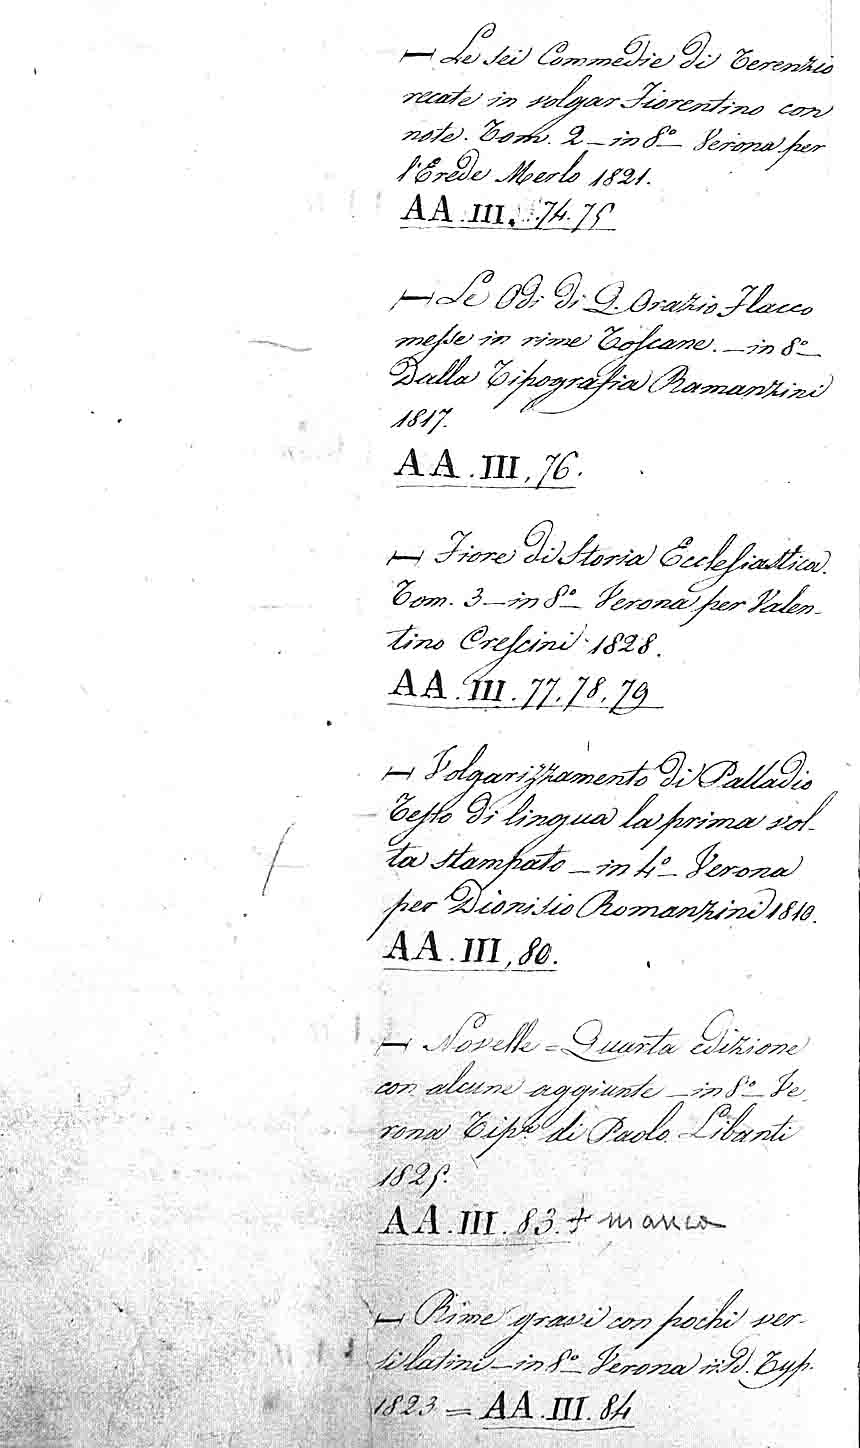 — Le sei Commedie di Terenzio
recate in volgar Fiorentino con
note. Tom. 2 — in 8º — Verona per
l'Erede Merlo 1821.
AA. III. 74. 75
— Le Odi di Q. Orazio Flacco
messe in rime Toscane. — in 8º —
Dalla Tipografia Ramanzini
1817.
AA. III. 76.
— Fiore di Storia Ecclesiastica.
Tom. 3 — in 8º — Verona per Valen-
tino Crescini 1828.
AA. III. 77. 78. 79
— Volgarizzamento di Palladio
Testo di lingua la prima vol-
ta stampato — in 4º — Verona
per Dionisio Romanzini 1810.
AA. III, 80.
— Novelle = Quarta edizione
con alcune aggiunte — in 8º — Ve
rona Tipª di Paolo Libanti
1825.
AA. III. 83. + manca
— Rime gravi con pochi ver-
si latini — in 8º Verona Typ.
1823 = AA. III. 84